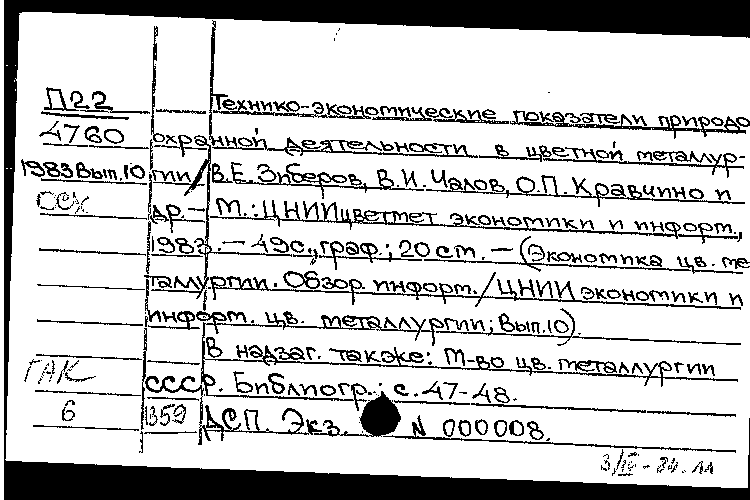 П22 Технико-экономические показатели природо
4760 охранной деятельности в цветной металлур-
1983 Вып.10 гии / В.Е. Зиберов, В.И. Чалов, О.П. Кравчино и
ОСХ др. — М.: ЦНИИцветмет экономики и информ.,
1983. — 49с., граф; 20 см. — (Экономика цв. ме
таллургии. Обзор. информ. / ЦНИИ экономики и
информ. цв. металлургии; Вып.10).
В надзаг. также: М-во цв. металлургии
ГАК СССР. Библиогр.: с. 47-48.
6 1359 ДСП. Экз. N 000008.
3/IV - 84.